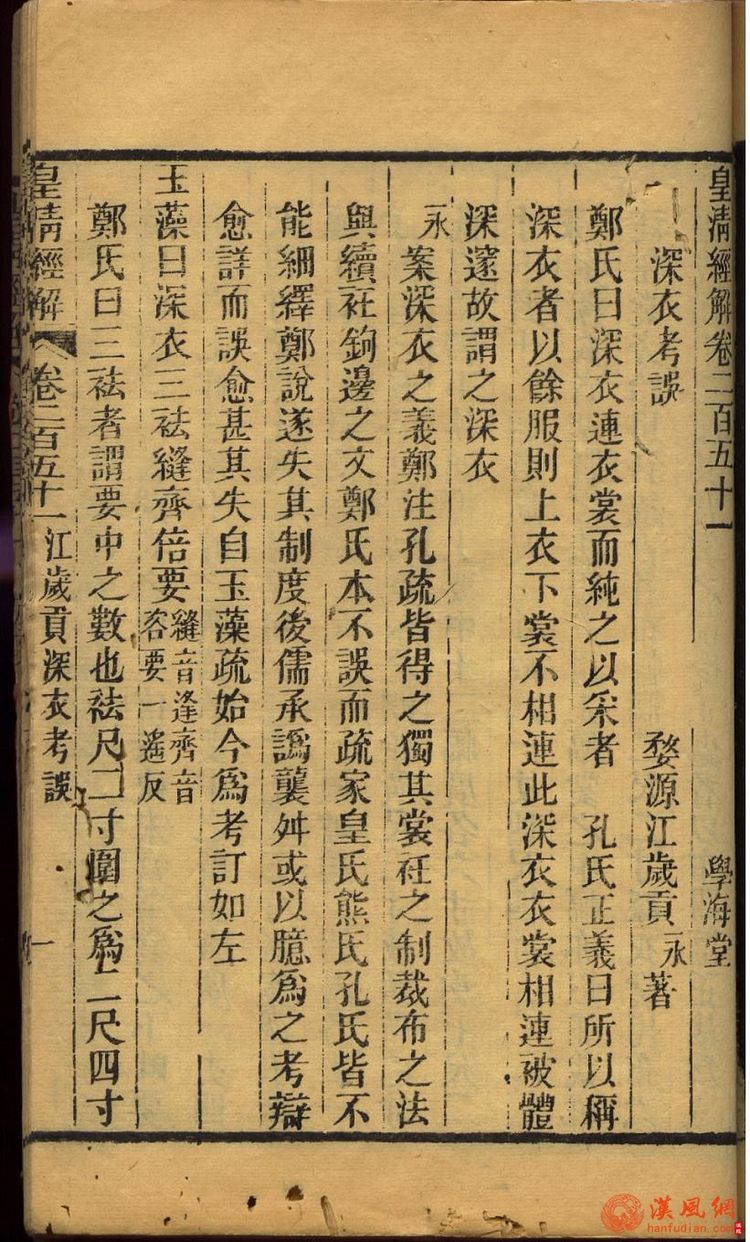 皇清經解卷二百五十一 學海堂
深衣考誤 婺源江歲貢永著
鄭氏曰深衣連衣裳而純之以采者 孔氏正義曰所以稱
深衣者以餘服則上衣下裳不相連此深衣衣裳相連被體
深邃故謂之深衣
永案深衣之義鄭注孔疏皆得之獨其裳衽之制裁布之法
與續衽鉤邊之文鄭氏本不誤而疏家皇氏熊氏孔氏皆不
能細繹鄭說遂失其制度後儒承譌襲舛或以臆爲之考辯
愈詳而誤愈甚其失自玉藻疏始今爲考訂如左
玉藻曰深衣三袪縫齊倍要縫音逢齊音
咨要一遙反
鄭氏曰三袪者謂要中之數也袪尺二寸圍之爲二尺四寸
皇清經解 卷二百五十一 江歲貢深衣考誤 一
漢風網
hanfudian.com